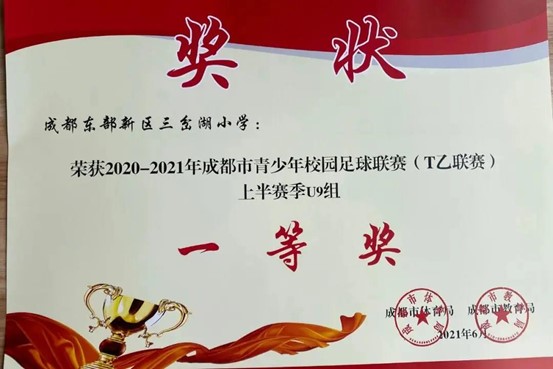 奖状
成都东部新区三岔湖小学：
荣获2020-2021年成都市青少年校园足球联赛（T乙联赛）
上半赛季U9组
一等奖
成都市体育局 成都市教育局
2021年6月